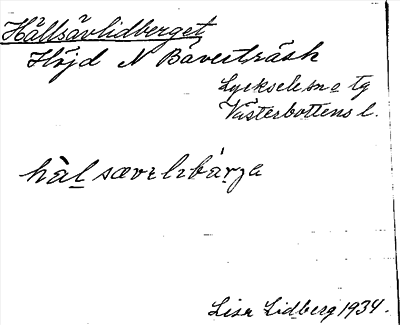 Hällsävlidberget
Höjd N Bäverträsk
Lycksele sn o tg
Västerbottens l.
hàl sævɛlɩbárја
Lisa Lidberg 1934.